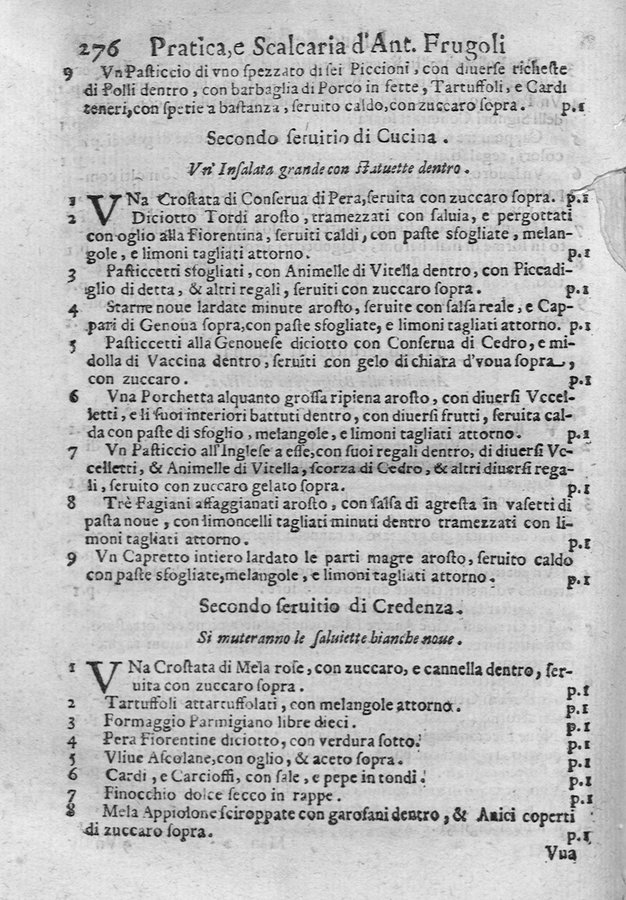 276 Pratica, e Scalcaria d'Ant. Frugoli
9 Vn Pasticcio di vno spezzato di sei Piccioni, con diuerse richeste
di Polli dentro, con barbaglia di Porco in fette, Tartuffoli, e Cardi
teneri, con spetie a bastanza, seruito caldo, con zuccaro sopra. p. 1
Secondo seruitio di Cucina.
Vn' Insalata grande con statuette dentro.
1 VNa Crostata di Conserua di Pera, seruita con zuccaro sopra. p. 1
2 Diciotto Tordi arosto, tramezzati con saluia, e pergottati
con oglio alla Fiorentina, seruiti caldi, con paste sfogliate, melan-
gole, e limoni tagliati attorno. p. 1
3 Pasticcetti sfogliati, con Animelle di Vitella dentro, con Piccadi-
glio di detta, & altri regali, seruiti con zuccaro sopra. p. 1
4 Starne noue lardate minute arosto, seruite con salsa reale, e Cap-
pari di Genoua sopra, con paste sfogliate, e limoni tagliati attorno. p. 1
5 Pasticcetti alla Genouese diciotto con Conserua di Cedro, e mi-
dolla di Vaccina dentro, seruiti con gelo di chiara d'voua sopra,
con zuccaro. p. 1
6 Vna Porchetta alquanto grossa ripiena arosto, con diuersi Vccel-
letti, e li suoi interiori battuti dentro, con diuersi frutti, seruita cal-
da con paste di sfoglio, melangole, e limoni tagliati attorno. p. 1
7 Vn Pasticcio all'Inglese a esse, con suoi regali dentro, di diuersi Vc-
celletti, & Animelle di Vitella, scorza di Cedro, & altri diuersi rega-
li, seruito con zuccaro gelato sopra. p. 1
8 Trè Fagiani affaggianati arosto, con salsa di agresta in vasetti di
pasta noue, con limoncelli tagliati minuti dentro tramezzati con li-
moni tagliati attorno. p. 1
9 Vn Capretto intiero lardato le parti magre arosto, seruito caldo
con paste sfogliate, melangole, e limoni tagliati attorno. p. 1
Secondo seruitio di Credenza.
Si muteranno le saluiette bianche noue.
1 VNa Crostata di Mela rose, con zuccaro, e cannella dentro, ser-
uita con zuccaro sopra. p. 1
2 Tartuffoli attartuffolati, con melangole attorno. p. 1
3 Formaggio Parmigiano libre dieci. p. 1
4 Pera Fiorentine diciotto, con verdura sotto. p. 1
5 Vliue Ascolane, con oglio, & aceto sopra. p. 1
6 Cardi, e Carcioffi, con sale, e pepe in tondi. p. 1
7 Finocchio dolce secco in rappe. p. 1
8 Mela Appiolone sciroppate con garofani dentro, & Anici coperti
di zuccaro sopra. p. 1
Vua